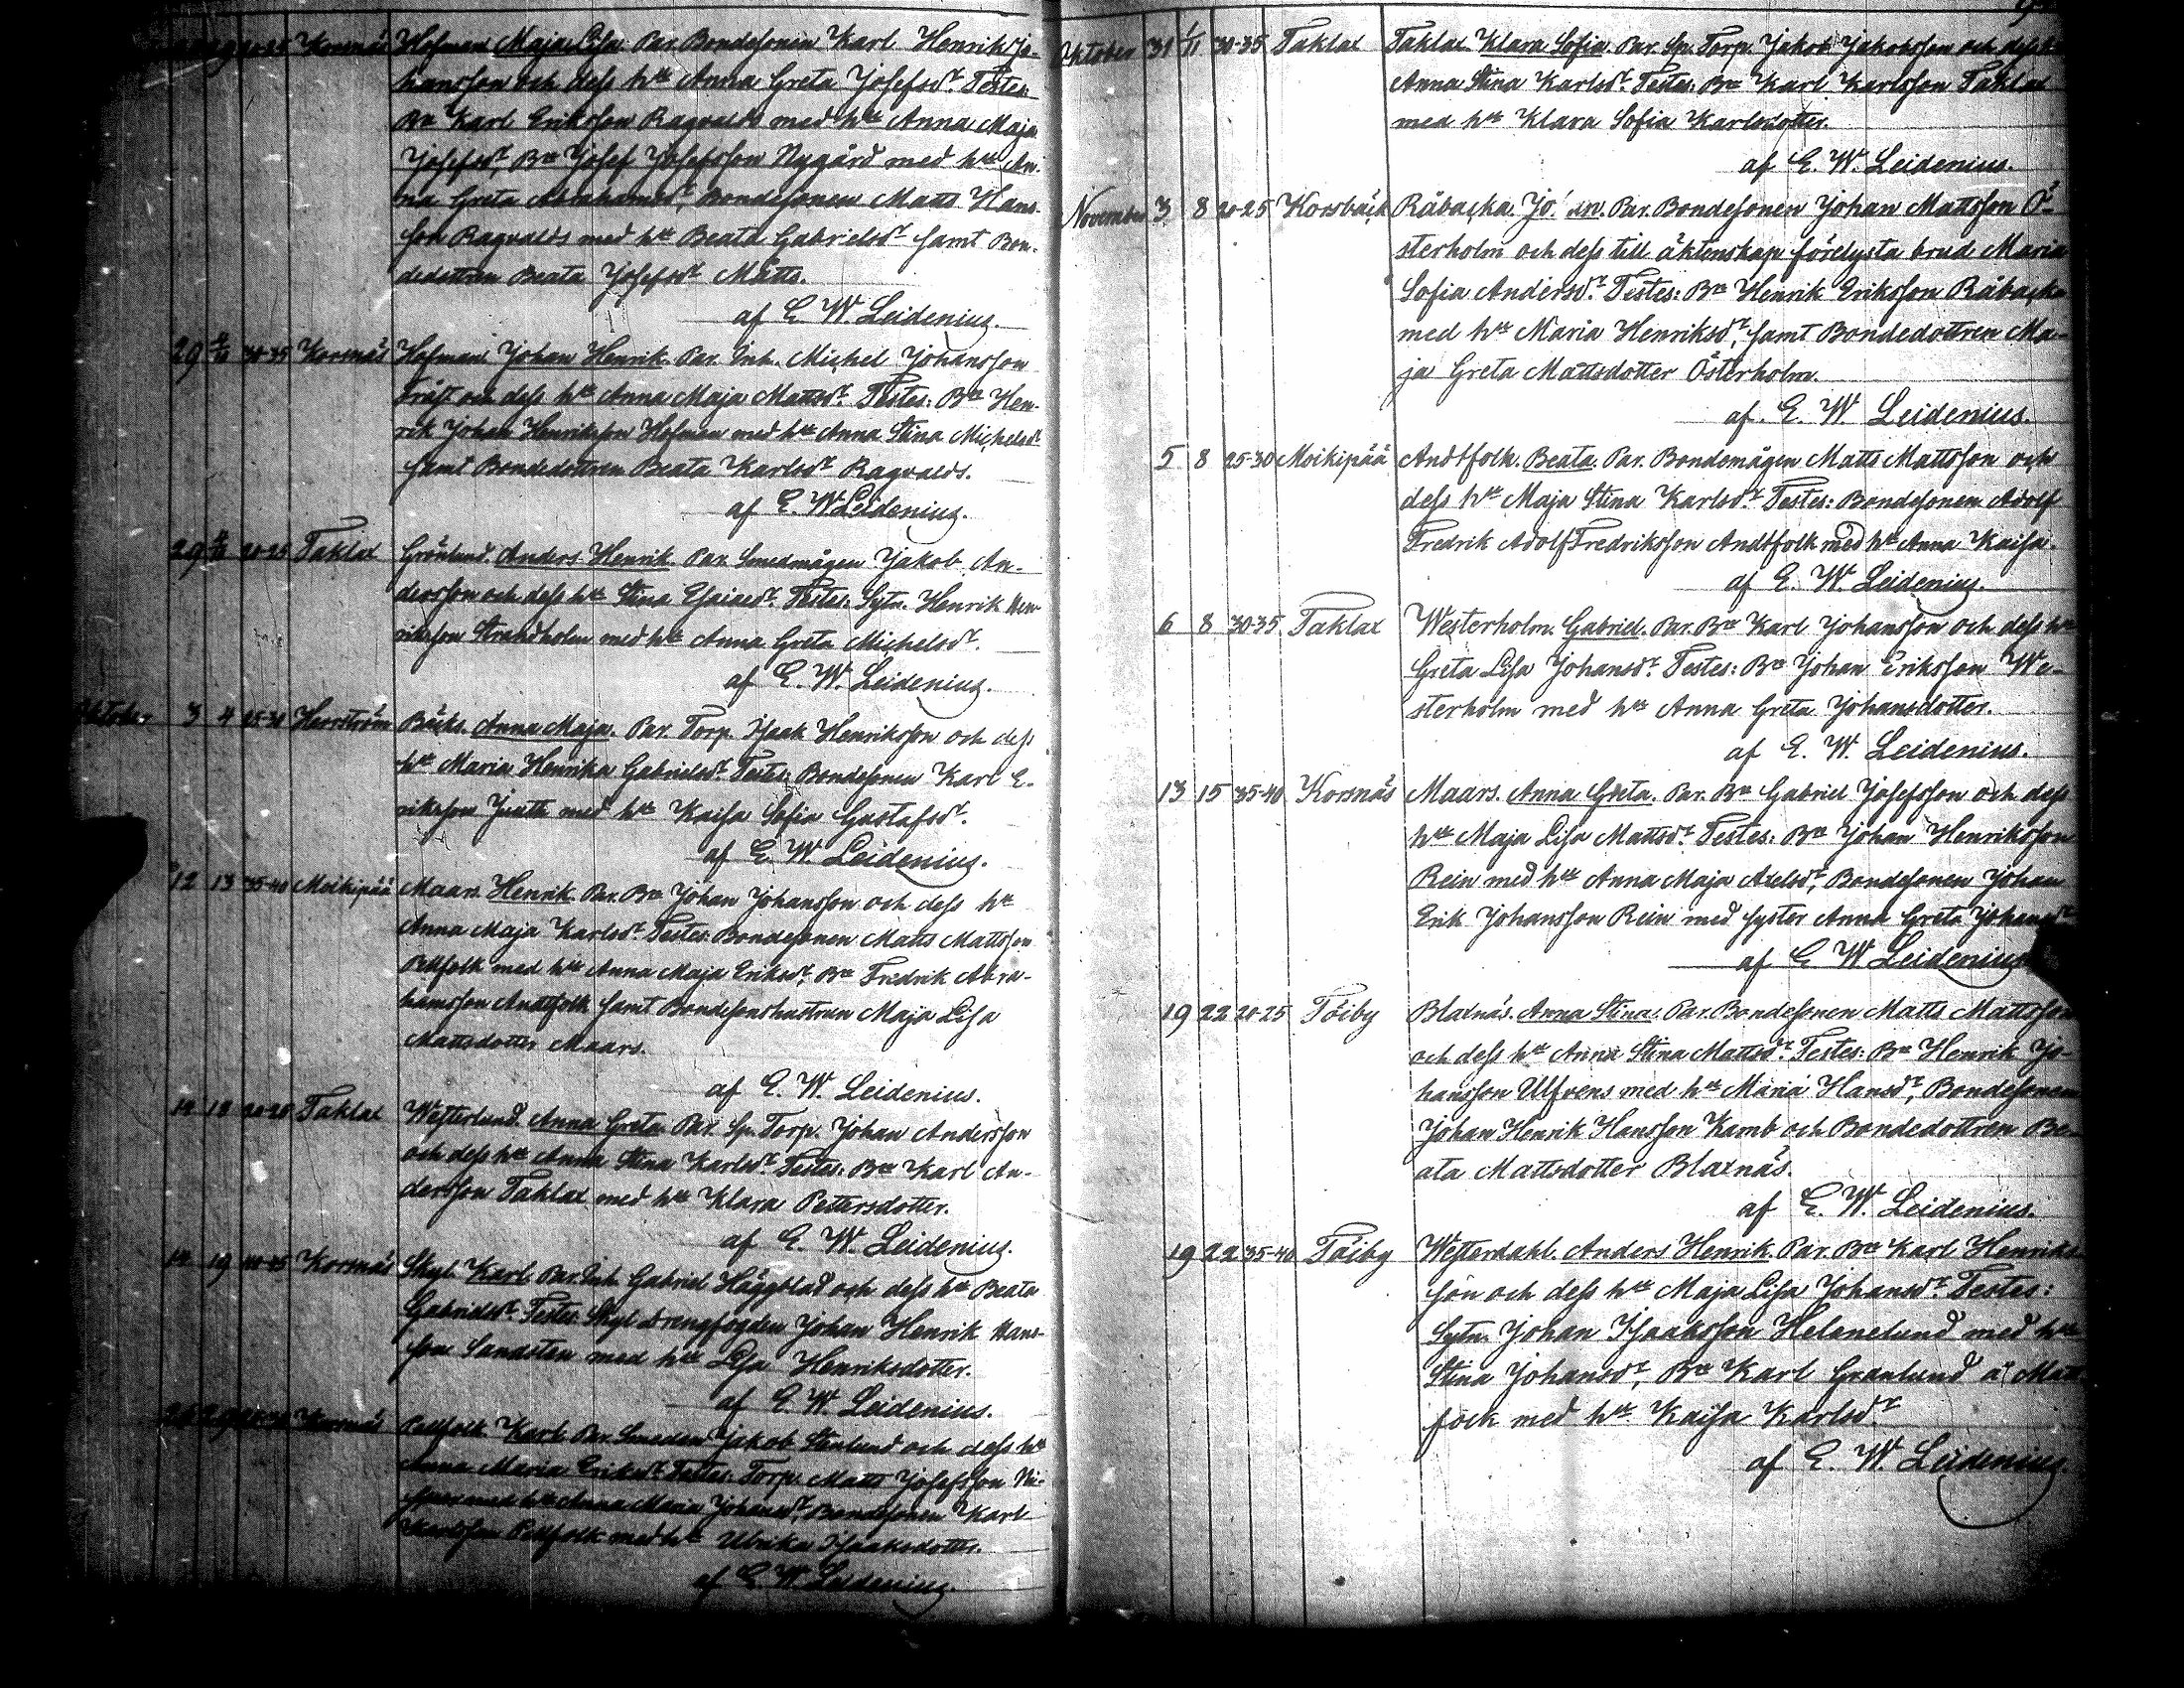 Korsnäs Hofman Maja Lisa. Par. Bondesonen Karl Henrik Jo-
hansson och dess h:u Anna Greta Josefsd:r Testes
B:n Karl Eriksson Ragvalds med h:u Anna Maja
Josefsd:r, B:n Josef Josefsson Nygård med h:u An-
na Greta Abrahamsd:r, Bondesonen Matts Hans-
son Ragvalds med h:u Beata Gabrielsd:r samt Bon-
dedottren Beata Josefsd:r Matts.
af E. W. Leidenius.
29 30-35 Korsnäs Hofman Johan Henrik. Par. Inh. Michel Johansson
Träft och dess h:u Anna Maja Mattsd:r. Testes: B:n Hen-
rik Johan Henriksson Hofman med h:u Anna Stina Michelsd:r
samt Bondedottren Beata Karlsd:r Ragvalds.
af E. W. Leidenius.
29 20-25 Taklax Grönlund. Anders Henrik. Par. Smedmågen Jakob An-
dersson och dess h:u Stina Esaiasd:r. Testes: Sytn. Henrik Hen-
riksson Strandholm med h:u Anna Greta Michelsd:r.
af E. W. Leidenius.
Oktober 3 4 25-30 Harrström Bäcks. Anna Maja. Par. Torp. Isaak Henriksson och dess
h:u Maria Henrika Gabrielsd:r Testes: Bondesonen Karl E-
riksson Juth med h:u Kaisa Sofia Gustafsd:r.
af E. W. Leidenius.
12 13 35-40 Moikipää Maars. Henrik. Par. B:n Johan Johansson och dess h:u
Anna Maja Karlsd:r. Testes: Bondesonen Matts Mattsson
Pellfolk med h:u Anna Maja Eriksd:r, B:n Fredrik Abra-
hamsson Andtfolk samt Bondesonshustrun Maja Lisa
Mattsdotter Maars.
af E. W. Leidenius.
20-25 Taklax Westerlund. Anna Greta. Par. Sp. Torp. Johan Andersson
och dess h:u Anna Stina Karlsd:r Testes: B:n Karl An-
dersson Taklax med h:u Klara Pettersdotter.
af E. W. Leidenius.
19 Korsnäs Skyt. Karl. Par. Inh. Gabriel Häggblad och dess h:u Beata
Gabrielsd:r. Testes: Skyt drengfogden Johan Henrik Hans-
son Sandsten med h:u Lisa Henriksdotter.
af E. W. Leidenius.
Korsnäs Pellfolk. Karl. Par. Smeden Jakob Stenlund och dess h:u
Anna Maria Eriksd:r Testes: Torp. Matts Josefsson
med h:u Anna Maria Johansd:r, Bondesonen Karl
Karlsson Pellfolk med h:u Ulrika Isaaksdotter.
af E. W. Leidenius.
Oktober 31 1/11 30-35 Taklax Taklax. Klara Sofia. Par. Sp. Torp. Jakob Jakobsson och dess h:u
Anna Stina Karlsd:r. Testes: B:n Karl Karlsson Taklax
med h:u Klara Sofia Karlsdotter.
af E. W. Leidenius.
November 3 8 20-25 Korsbäck Råbacka. Johan. Par. Bondesonen Johan Mattsson Ö-
sterholm och dess till äktenskap förelysta brud Maria
Sofia Andersd:r. Testes: B:n Henrik Eriksson Råbacka
med h:u Maria Henriksd:r, samt Bondedottren Ma-
ja Greta Mattsdotter Österholm.
af. E. W. Leidenius.
5 8 25-30 Moikipää Andtfolk. Beata. Par. Bondemågen Matts Mattsson och
dess h:u Maja Stina Karlsd:r. Testes: Bondesonen Adolf
Fredrik Adolf Fredriksson Andtfolk med h:u Anna Kaisa.
af E. W. Leidenius.
6 8 30-35 Taklax Westerholm. Gabriel. Par. B:n Karl Johansson och dess h:u
Greta Lisa Johansd:r Testes: B:n Johan Eriksson We-
sterholm med h:u Anna Greta Johansdotter.
af E. W. Leidenius.
13 15 35-40 Korsnäs Maars. Anna Greta. Par. B:n Gabriel Josefsson och dess
h:u Maja Lisa Mattsd:r. Testes: B:n Johan Henriksson
Rein med h:u Anna Maja Axelsd:r, Bondesonen Johan
Erik Johansson Rein med syster Anna Greta Johansd:r
af E. W. Leidenius
19 22 20-25 Töjby Blaxnäs. Anna Stina. Par. Bondesonen Matts Mattsson
och dess h:u Anna Stina Mattsd:r. Testes: B:n Henrik Jo-
hansson Ulfvens med h:u Maria Hansd:r, Bondesonen
Johan Henrik Hansson Kamb och Bondedottren Be-
ata Mattsdotter Blaxnäs.
af E. W. Leidenius.
19 22 35-40 Töjby Westerdahl. Anders Henrik. Par. B:n Karl Henriks-
son och dess h:u Maja Lisa Johansd:r. Testes:
Sytn. Johan Isaaksson Helenelund med h:u
Stina Johansd:r, B:n Karl Granlund
fock med h:u Kaisa Karlsd:r
af E. W. Leidenius.